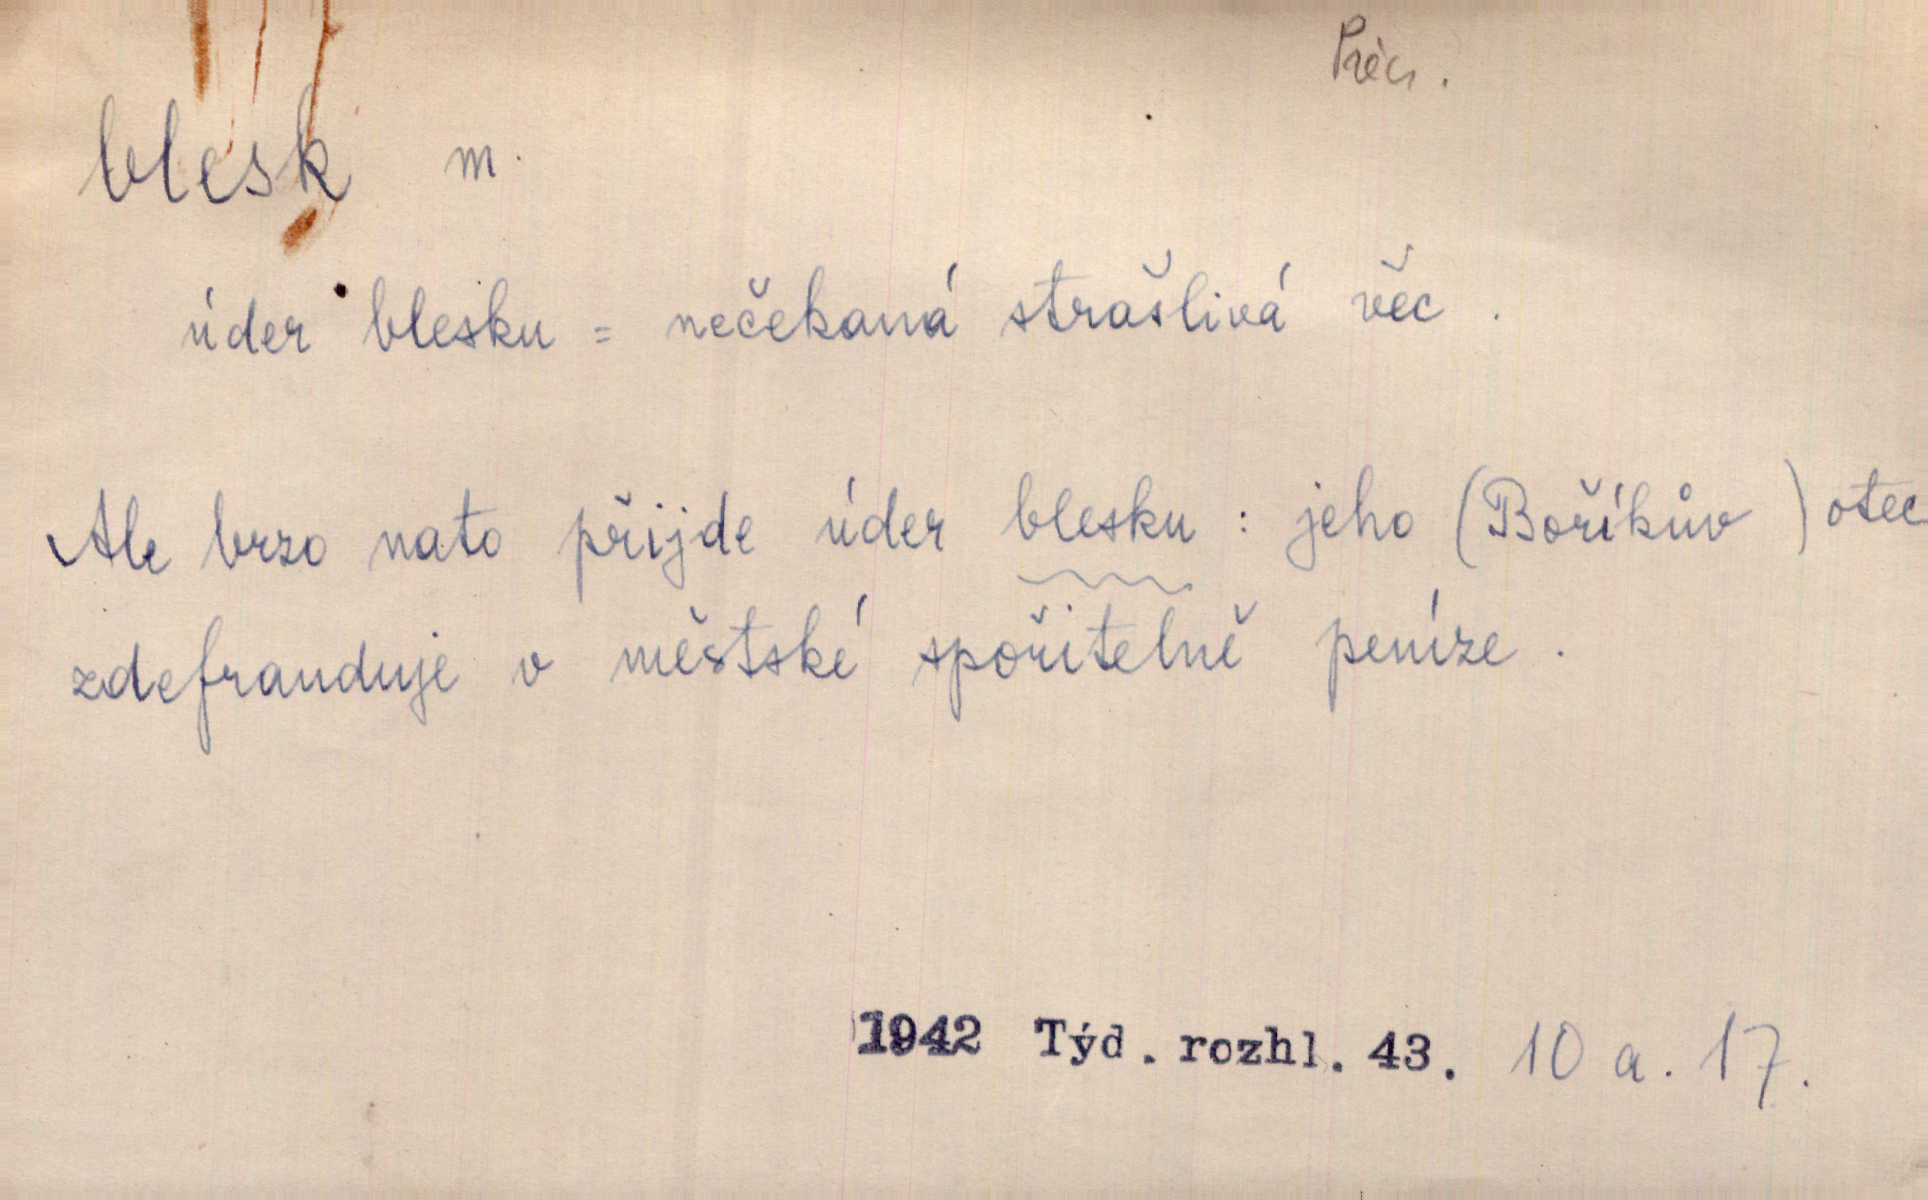 blesk m.
úder blesku = nečekaná strašlivá věc.
Ale brzo nato přijde úder blesku : jeho (Boříkův) otec
zdefranduje v městské spořitelně peníze.
1942 Týd. rozhl. 43. 10 a. 17.